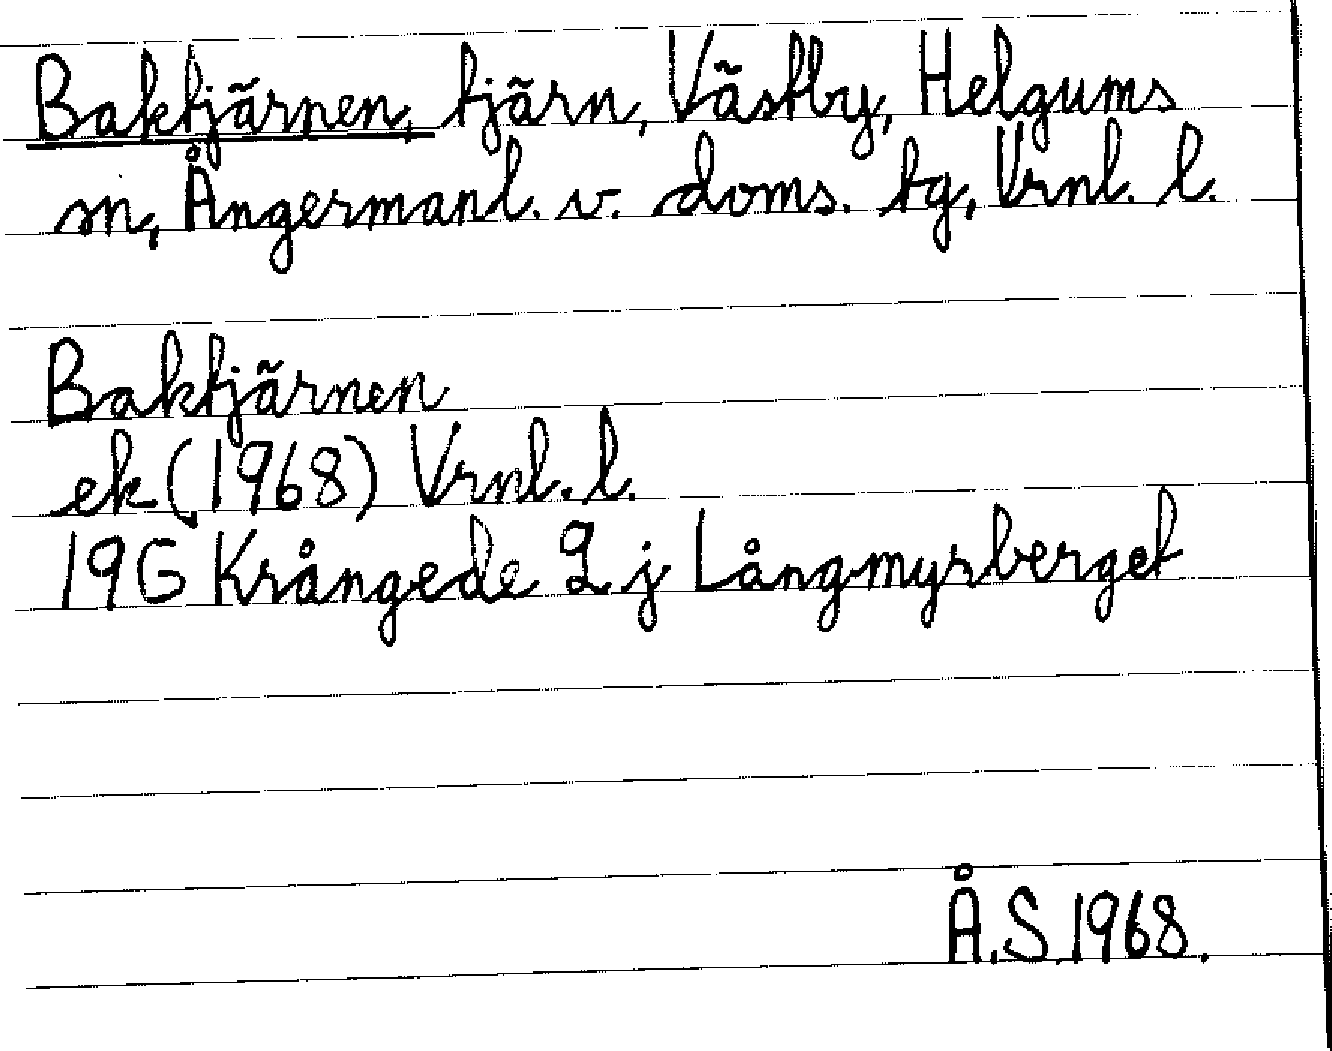 Baktjärnen, tjärn, Västby, Helgums
sn, Ångermanl. v. doms. tg, Vrnl. l.
Baktjärnen
ek (1968) Vrnl. l.
19G Krångede 2 j Långmyrberget
Å.S. 1968.